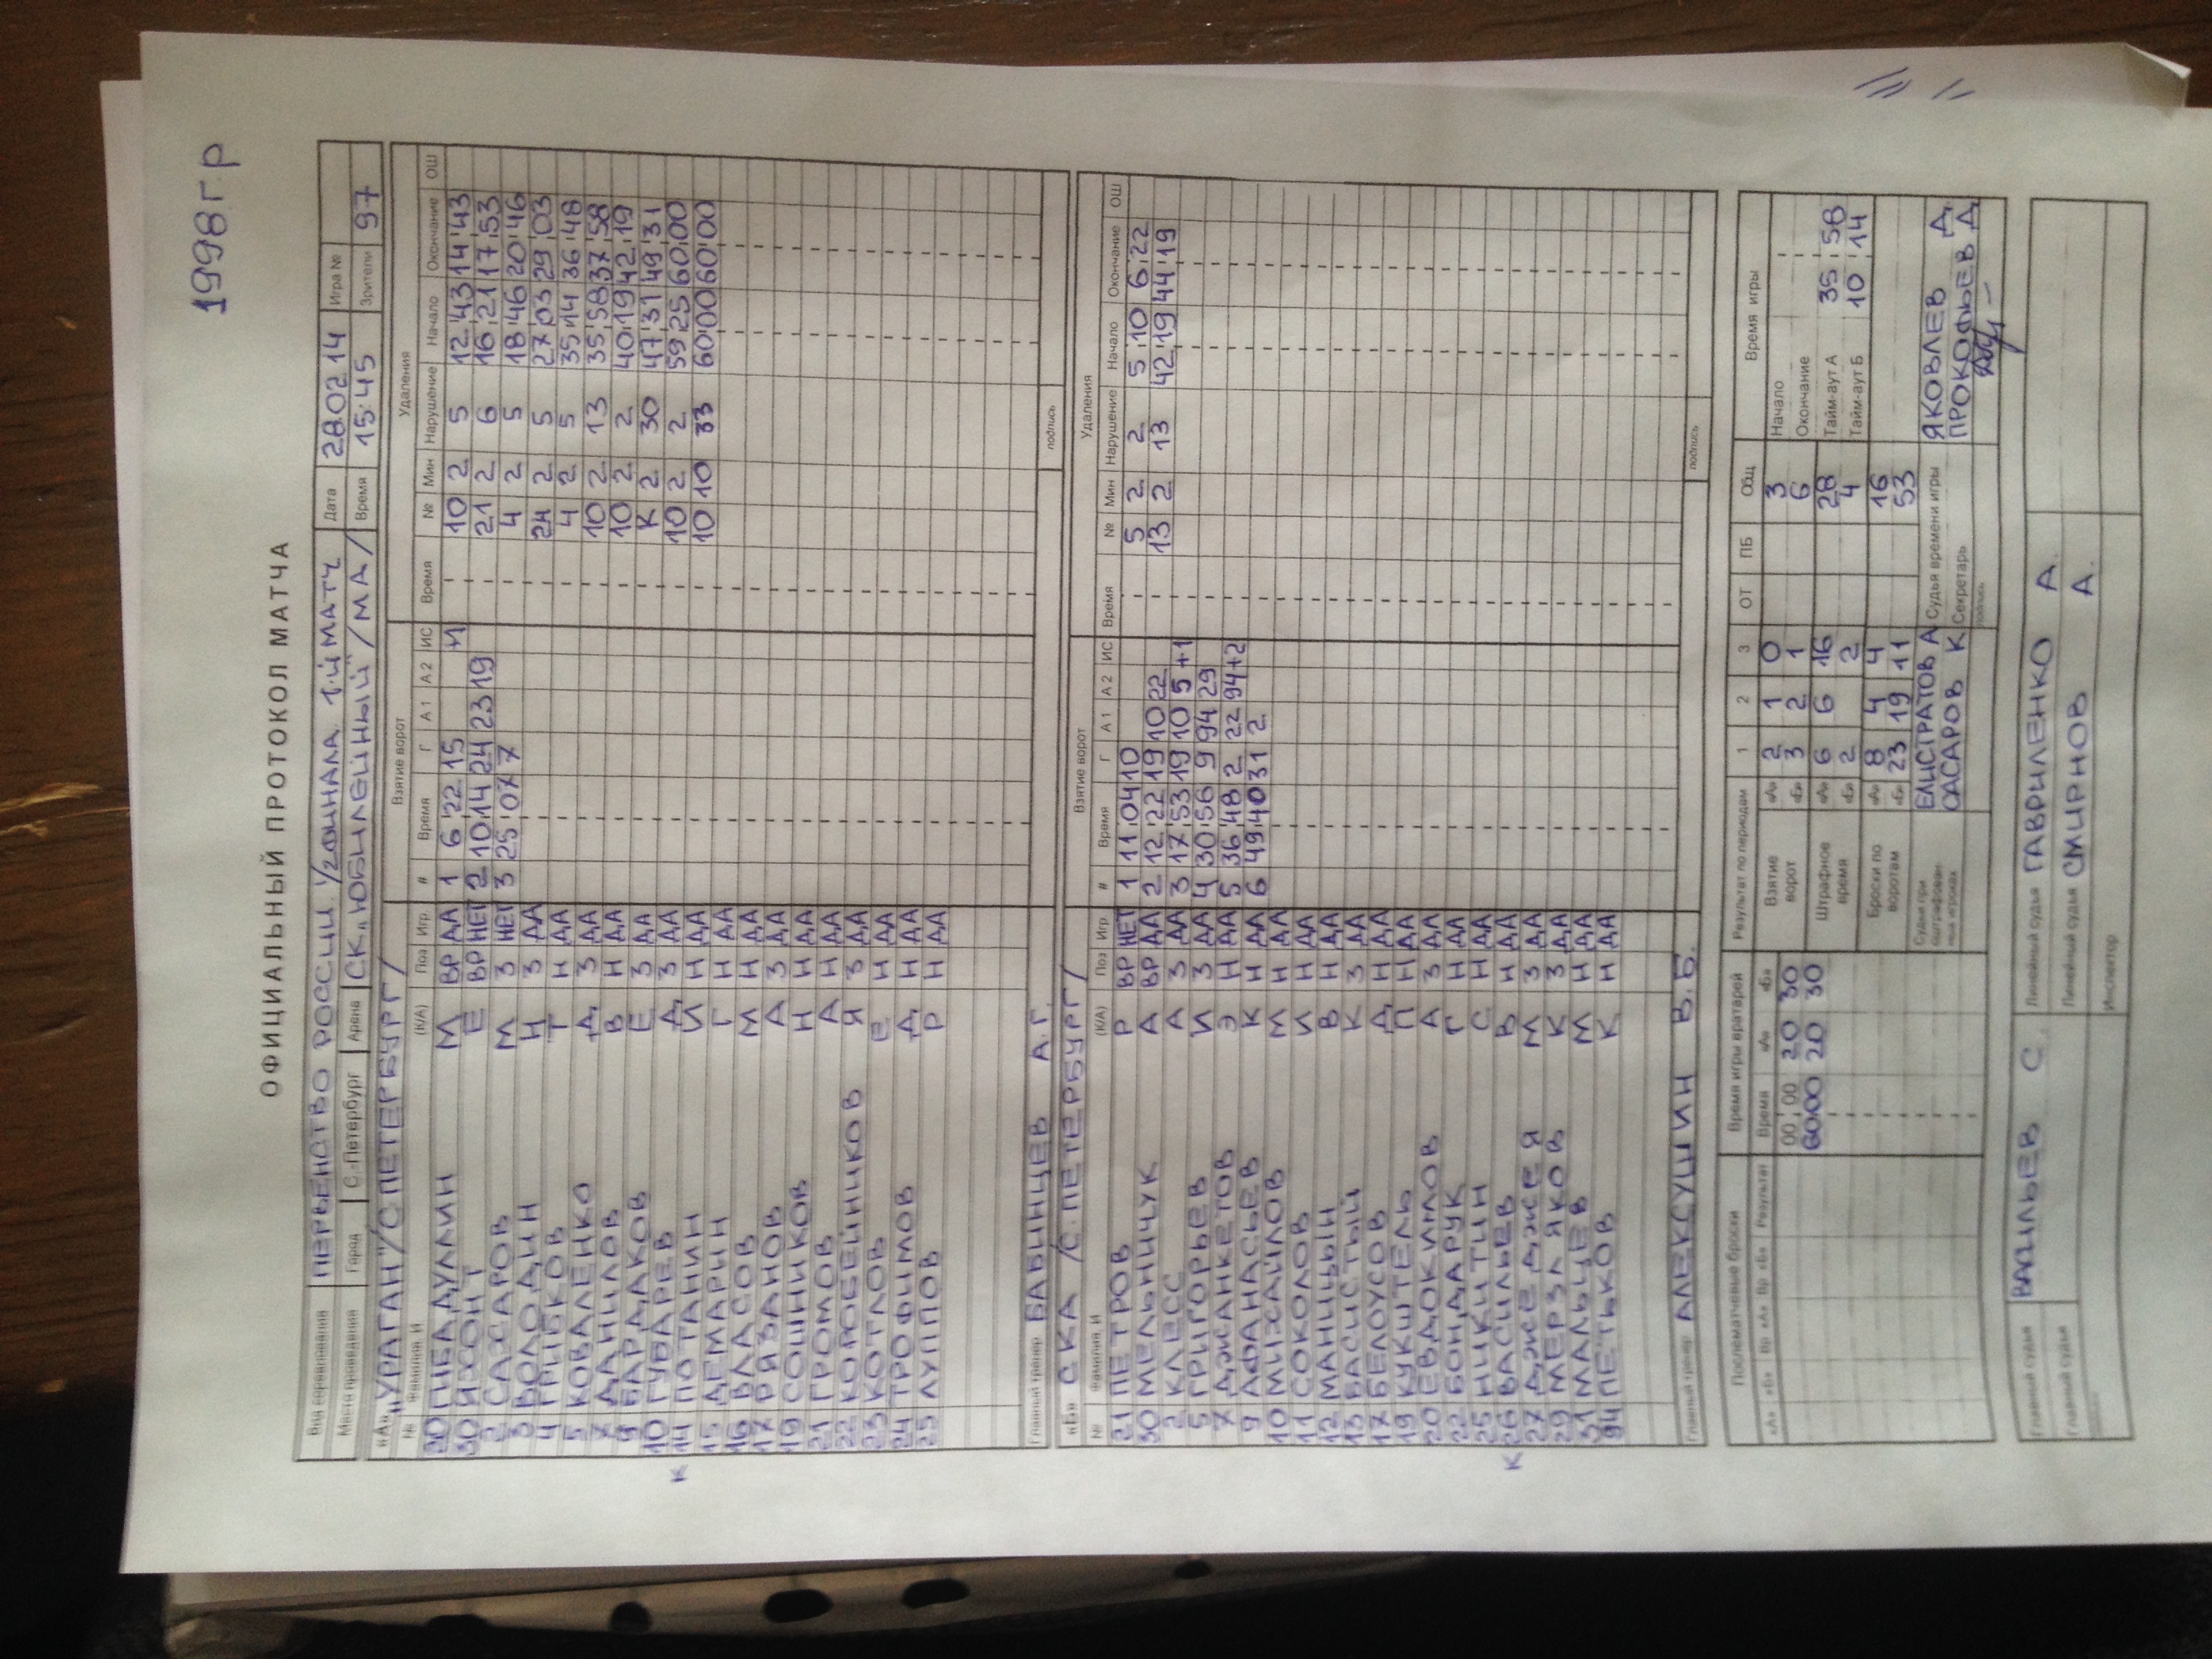 1998 г.р
ОФИЦИАЛЬНЫЙ ПРОТОКОЛ МАТЧА
Вид соревнования ПЕРВЕНСТВО РОССИИ. 1/2 ФИНАЛА 1-Й МАТЧ Дата 28.02.14 Игра №
Место проведения Город С.-Петербург Арена СК "ЮБИЛЕЙНЫЙ" /МА/ Время 15:45 Зрители 97
«А» "УРАГАН" /С.ПЕТЕРБУРГ/ Взятие ворот Удаления
№ Фамилия, И (К/А) Поз Игр # Время Г А1 А2 ИС Время № Мин Нарушение Начало Окончание ОШ
30 ГИБАДУЛЛИН М ВР ДА 1 6 22 15 Ч 10 2 5 12 43 14 43
30 ЯХСОНТ Е ВР НЕТ 2 10 14 24 23 19 21 2 6 16 21 17 53
2 САХАРОВ М З НЕТ 3 25 07 7 4 2 5 18 46 20 46
3 ВОЛОДИН И З ДА 24 2 5 27 03 29 03
4 ГРИБКОВ Т Н ДА 4 2 5 35 14 36 48
5 КОВАЛЕНКО Д З ДА 10 2 13 35 58 37 58
7 ДАНИЛОВ В Н ДА 10 2 2 40 19 42 19
9 БАРДАКОВ Е З ДА К 2 30 47 31 49 31
10 ГУБАРЕВ Д З ДА 10 2 2 59 25 60 00
К 14 ПОТАНИН И Н ДА 10 10 33 60 00 60 00
15 ДЕМАРИН Г Н ДА
16 ВЛАСОВ М Н ДА
17 РЯБАНОВ А З ДА
19 СОШНИКОВ Н Н ДА
21 ГРОМОВ А Н ДА
22 КОРОБЕЙНИКОВ Я З ДА
23 КОТЛОВ Е Н ДА
24 ТРОФИМОВ Д Н ДА
25 ЛУППОВ Р Н ДА
Главный тренер БАБИНЦЕВ А.Г. подпись
«Б» СКА /С.ПЕТЕРБУРГ/ Взятие ворот Удаления
№ Фамилия, И (К/А) Поз Игр # Время Г А1 А2 ИС Время № Мин Нарушение Начало Окончание ОШ
21 ПЕТРОВ Р ВР НЕТ 1 11 04 10 5 2 2 5 10 6 22
30 МЕЛЬНИЧУК А ВР ДА 2 12 22 19 10 22 13 2 13 42 19 44 19
2 КЛЕСС А З ДА 3 17 53 19 10 5 +1
5 ГРИГОРЬЕВ И З ДА 4 30 56 9 94 29
7 ДЖАНКЕТОВ Э Н ДА 5 36 48 2 22 94 +2
9 АФАНАСЬЕВ К Н ДА 6 49 40 31 2
10 МИХАЙЛОВ М Н ДА
11 СОКОЛОВ И Н ДА
12 МАНИЦЫН В Н ДА
13 БАСИСТЫЙ К З ДА
17 БЕЛОУСОВ Д Н ДА
19 КУКШТЕЛЬ П Н ДА
20 ЕВДОКИМОВ А З ДА
22 БОНДАРУК Г Н ДА
25 НИКИТИН С Н ДА
К 26 ВАСИЛЬЕВ В Н ДА
27 ДЖЕДЖЕЯ М З ДА
29 МЕРЗЛЯКОВ К З ДА
31 МАЛЬЦЕВ М Н ДА
94 ПЕТЬКОВ К Н ДА
Главный тренер АЛЕКСУШИН В.Б. подпись
Послематчевые броски Время игры вратарей Результат по периодам 1 2 3 ОТ ПБ Общ Время игры
«А» «Б» Вр «А» Вр «Б» Результат Время «А» «Б» Взятие ворот «А» 2 1 0 3 Начало
00 00 20 30 «Б» 3 2 1 6 Окончание
60 00 20 30 Штрафное время «А» 6 6 16 28 Тайм-аут А 35 58
«Б» 2 2 4 Тайм-аут Б 10 14
Броски по воротам «А» 8 4 4 16
«Б» 23 19 11 53
Судьи при оштрафованных игроках ЕЛИСТРАТОВ А Судья времени игры ЯКОВЛЕВ Д
САСАРОВ К Секретарь ПРОКОФЬЕВ Д
подпись
Главный судья ВАСИЛЬЕВ С. Линейный судья ГАВРИЛЕНКО А.
Главный судья Линейный судья СМИРНОВ А.
Инспектор